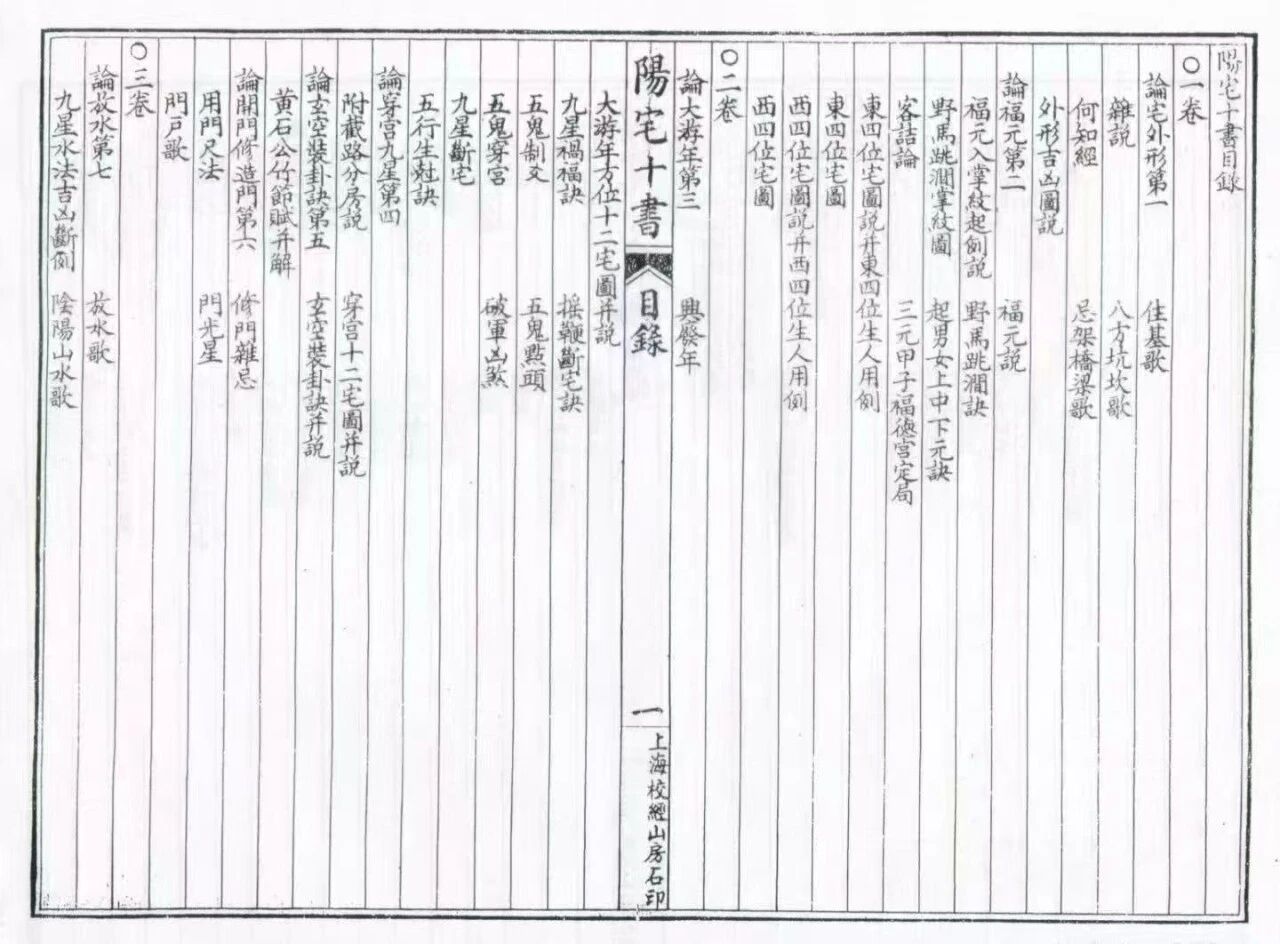 陽宅十書目錄
○一卷
論宅外形第一　住基歌
雜説　八方坑坎歌
何知經　忌架橋梁歌
外形吉凶圖説
論福元第二　福元説
福元入掌紋起例説　野馬跳澗訣
野馬跳澗掌紋圖　起男女上中下元訣
客詰論　三元甲子福德宮定局
東四位宅圖説并東四位生人用例
東四位宅圖
西四位宅圖説并西四位生人用例
西四位宅圖
○二卷
論大游年第三　興發年
陽宅十書　目錄　一　上海校經山房石印
大游年方位十二宅圖并説
九星禍福訣　搖鞭斷宅訣
五鬼制文　五鬼點頭
五鬼穿宮　破軍凶煞
九星斷宅
五行生尅訣
論穿宮九星第四
附截路分房説　穿宮十二宅圖并説
論玄空裝卦訣第五　玄空裝卦訣并説
黃石公竹節賦并解
論開門修造門第六　修門雜忌
用門尺法　門光星
門戸歌
○三卷
論放水第七　放水歌
九星水法吉凶斷例　陰陽山水歌